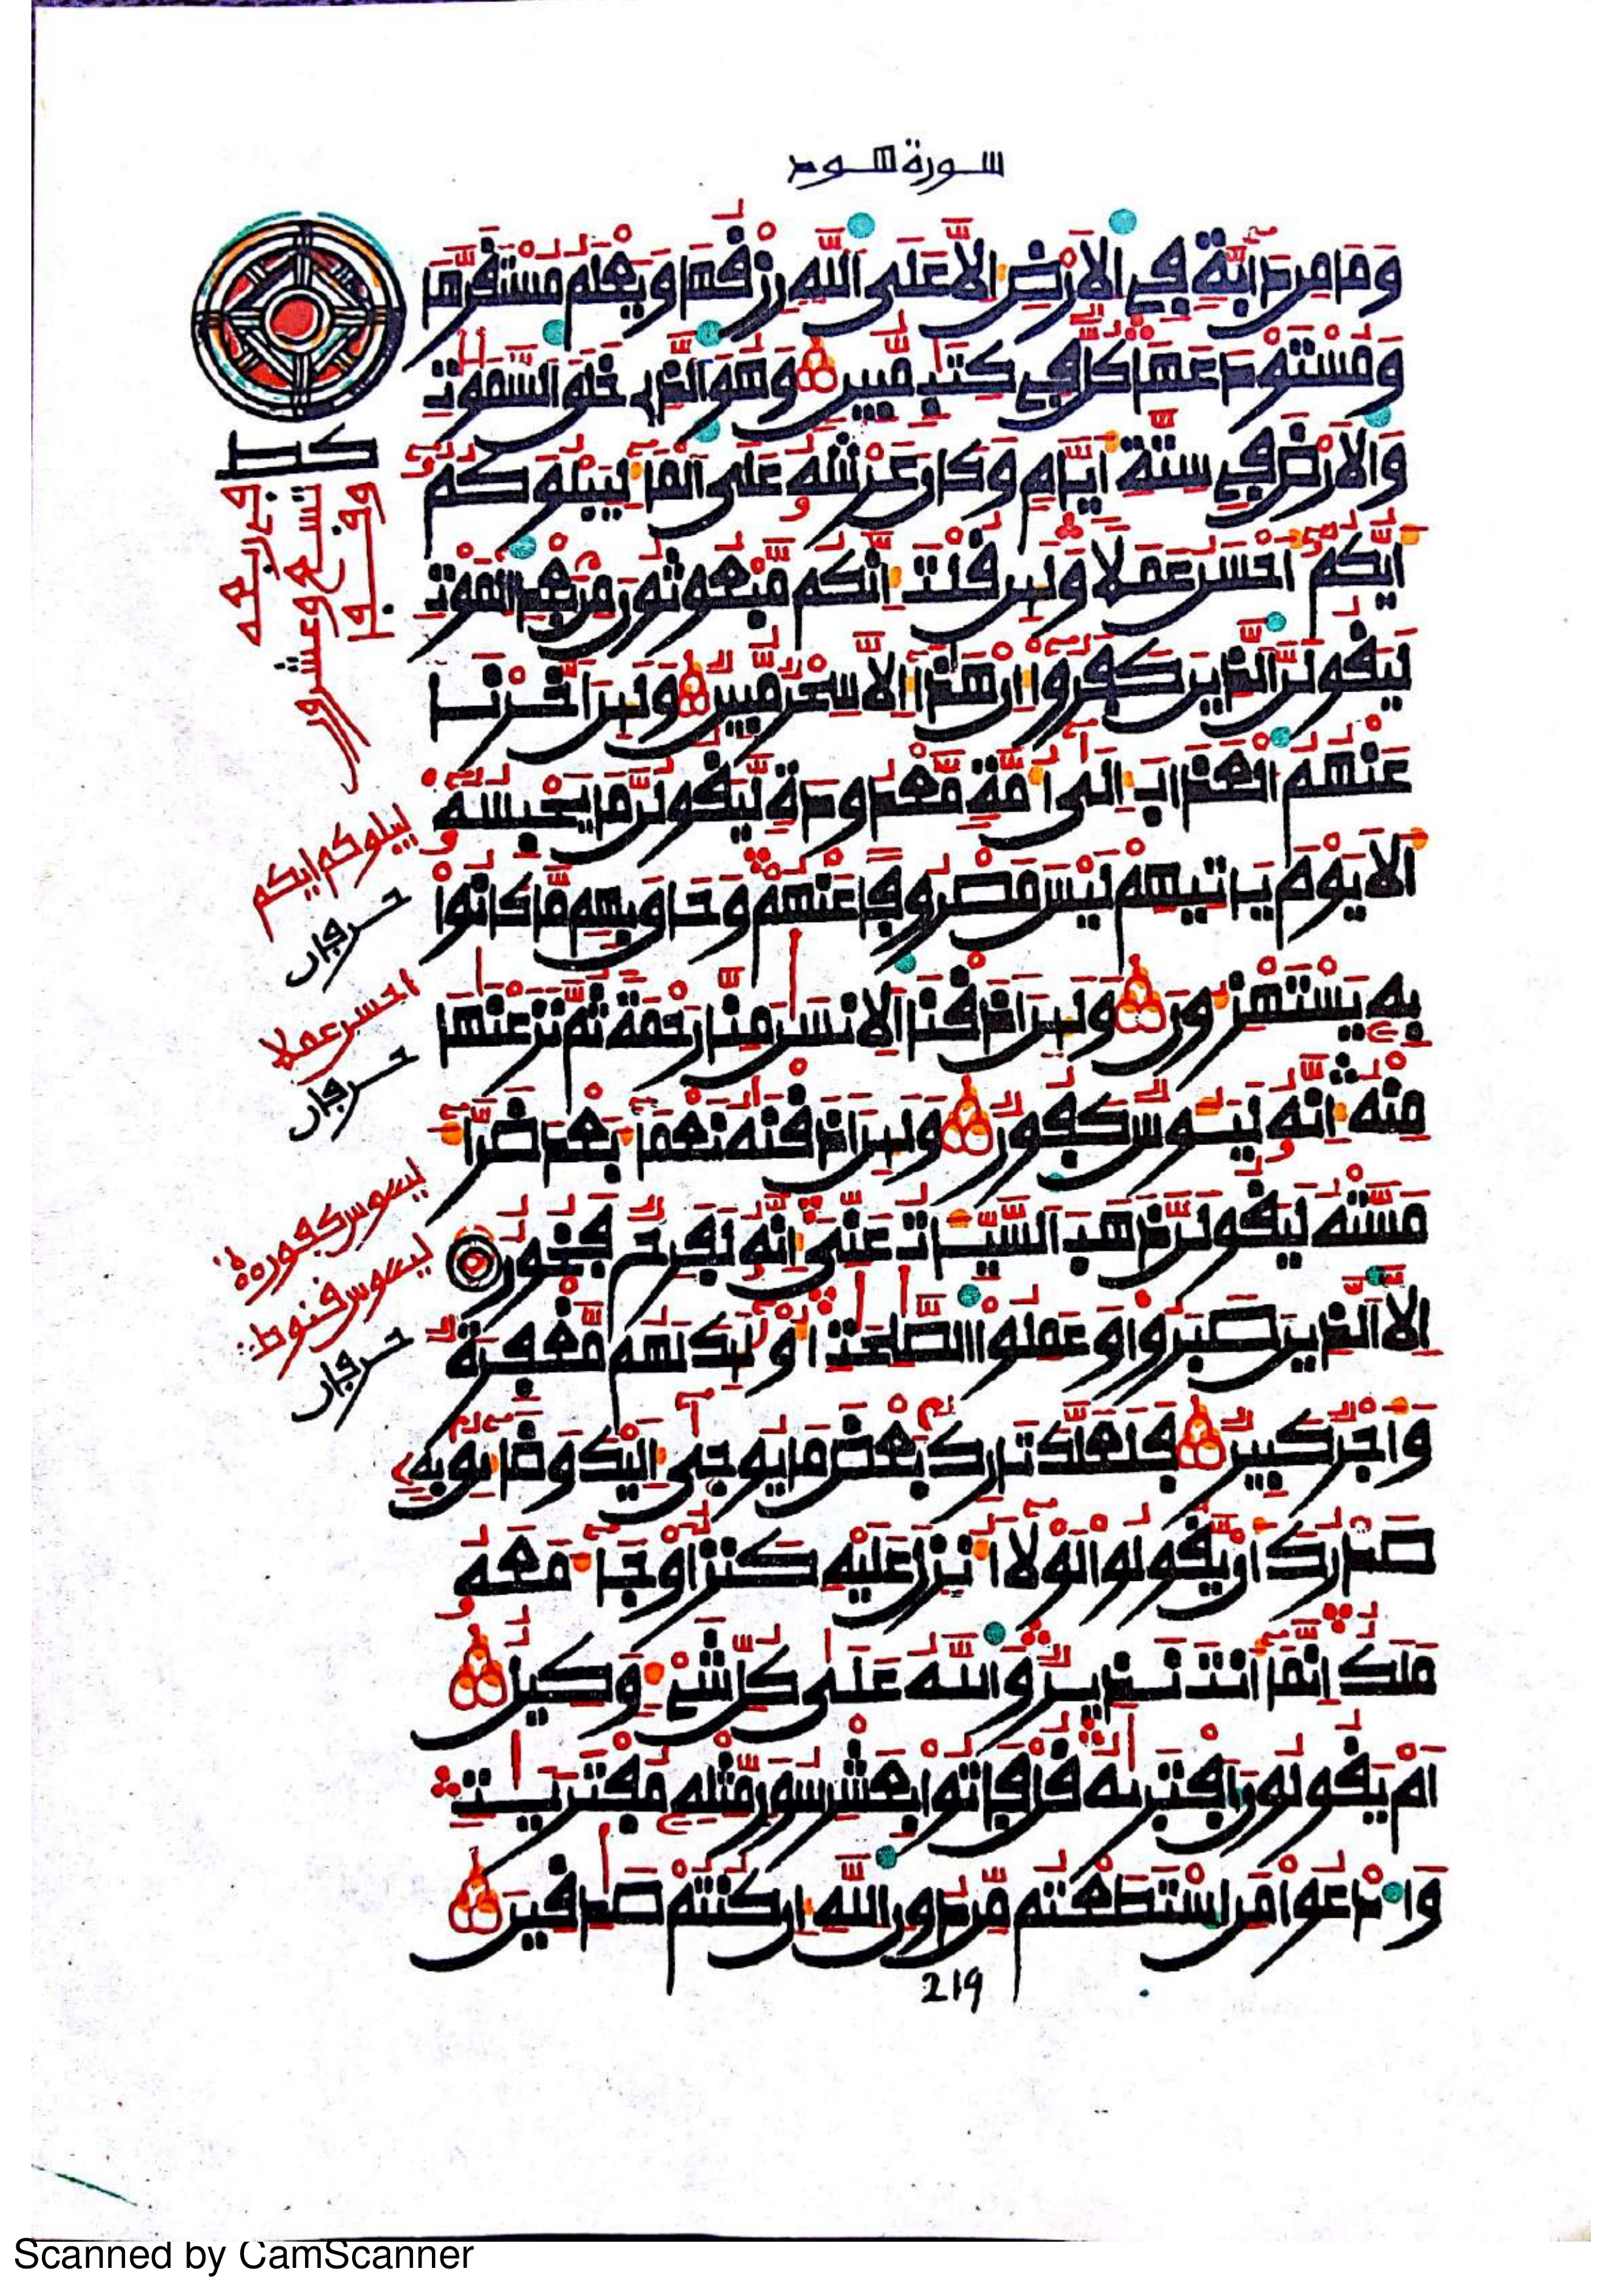 سورة هود
وَمَا مِن دَآبَّةٍ فِي الَارْضِ إِلَّا عَلَى اللَّهِ رِزْقُهَا وَيَعْلَمُ مُسْتَقَرَّهَا
وَمُسْتَوْدَعَهَا كُلٌّ فِي كِتَٰبٍ مُّبِينٍ وَهُوَ الَّذِي خَلَقَ السَّمَٰوَٰتِ
وَالَارْضَ فِي سِتَّةِ أَيَّامٍ وَكَانَ عَرْشُهُ عَلَى الْمَآءِ لِيَبْلُوَكُمُ
أَيُّكُمُ أَحْسَنُ عَمَلًا وَلَئِن قُلْتَ إِنَّكُم مَّبْعُوثُونَ مِن بَعْدِ الْمَوْتِ
لَيَقُولَنَّ الَّذِينَ كَفَرُوا إِنْ هَٰذَا إِلَّا سِحْرٌ مُّبِينٌ وَلَئِنَ أَخَّرْنَا
عَنْهُمُ الْعَذَابَ إِلَىٰ أُمَّةٍ مَّعْدُودَةٍ لَّيَقُولُنَّ مَا يَحْبِسُهُ
أَلَا يَوْمَ يَاتِيهِمْ لَيْسَ مَصْرُوفًا عَنْهُمْ وَحَاقَ بِهِم مَّا كَانُوا
بِهِ يَسْتَهْزِءُونَ وَلَئِنَ أَذَقْنَا الِانسَٰنَ مِنَّا رَحْمَةً ثُمَّ نَزَعْنَٰهَا
مِنْهُ إِنَّهُ لَيَئُوسٌ كَفُورٌ وَلَئِنَ أَذَقْنَٰهُ نَعْمَآءَ بَعْدَ ضَرَّآءَ
مَسَّتْهُ لَيَقُولَنَّ ذَهَبَ السَّيِّئَاتُ عَنِّي إِنَّهُ لَفَرِحٌ فَخُورٌ
إِلَّا الَّذِينَ صَبَرُوا وَعَمِلُوا الصَّٰلِحَٰتِ أُوْلَٰئِكَ لَهُم مَّغْفِرَةٌ
وَأَجْرٌ كَبِيرٌ فَلَعَلَّكَ تَارِكٌ بَعْضَ مَا يُوحَىٰ إِلَيْكَ وَضَآئِقٌ بِهِ
صَدْرُكَ أَنْ يَقُولُوا لَوْلَآ أُنزِلَ عَلَيْهِ كَنزٌ أَوْ جَآءَ مَعَهُ
مَلَكٌ إِنَّمَآ أَنتَ نَذِيرٌ وَاللَّهُ عَلَىٰ كُلِّ شَيْءٍ وَكِيلٌ
أَمْ يَقُولُونَ افْتَرَىٰهُ قُلْ فَاتُوا بِعَشْرِ سُوَرٍ مِّثْلِهِ مُفْتَرَيَٰتٍ
وَادْعُوا مَنِ اسْتَطَعْتُم مِّن دُونِ اللَّهِ إِن كُنتُمْ صَٰدِقِينَ
219
كط
تسع وعشرون
ليبلوكم ايكم
حرفان
احسن عملا
حرفان
ليئوس كفور
ليئوس قنوط
حرفان
Scanned by CamScanner